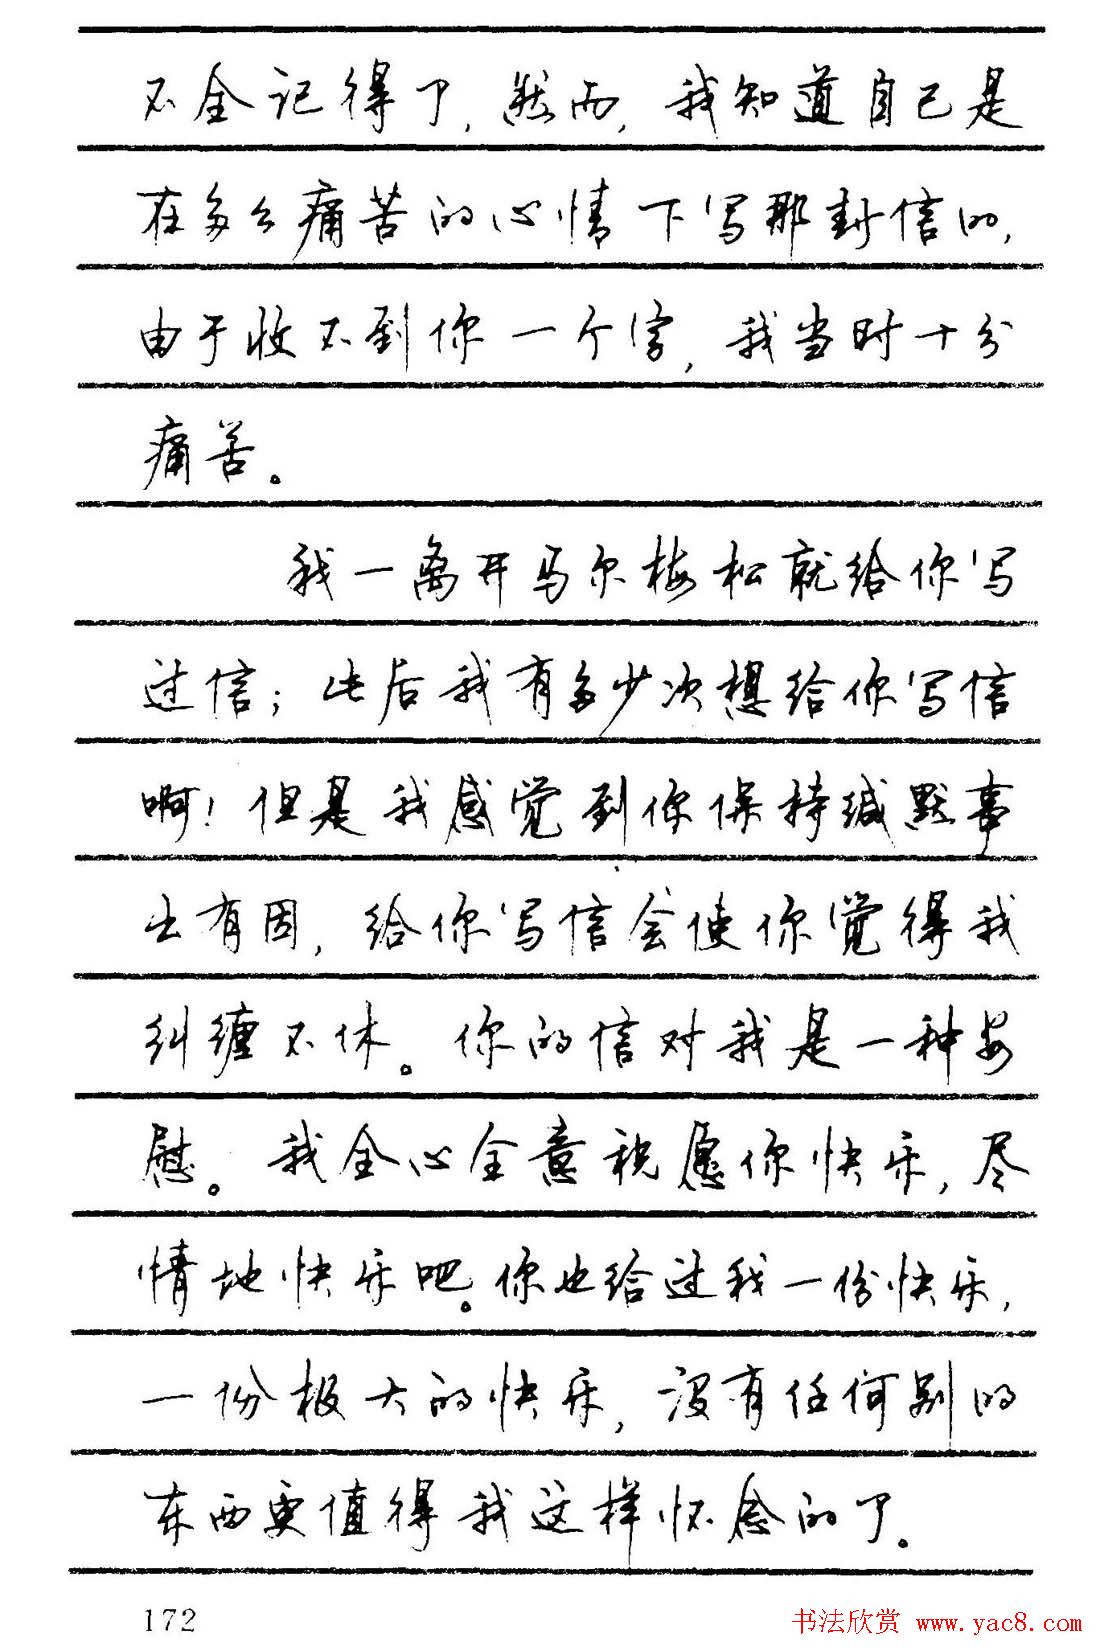 不全记得了,然而,我知道自己是
在多么痛苦的心情下写那封信的,
由于收不到你一个字,我当时十分
痛苦。
我一离开马尔梅松就给你写
过信;此后我有多少次想给你写信
啊!但是我感觉到你保持缄默事
出有因,给你写信会使你觉得我
纠缠不休。你的信对我是一种安
慰。我全心全意祝愿你快乐,尽
情地快乐吧。你也给过我一份快乐,
一份极大的快乐,没有任何别的
东西更值得我这样怀念的了。
172
书法欣赏 www.yac8.com